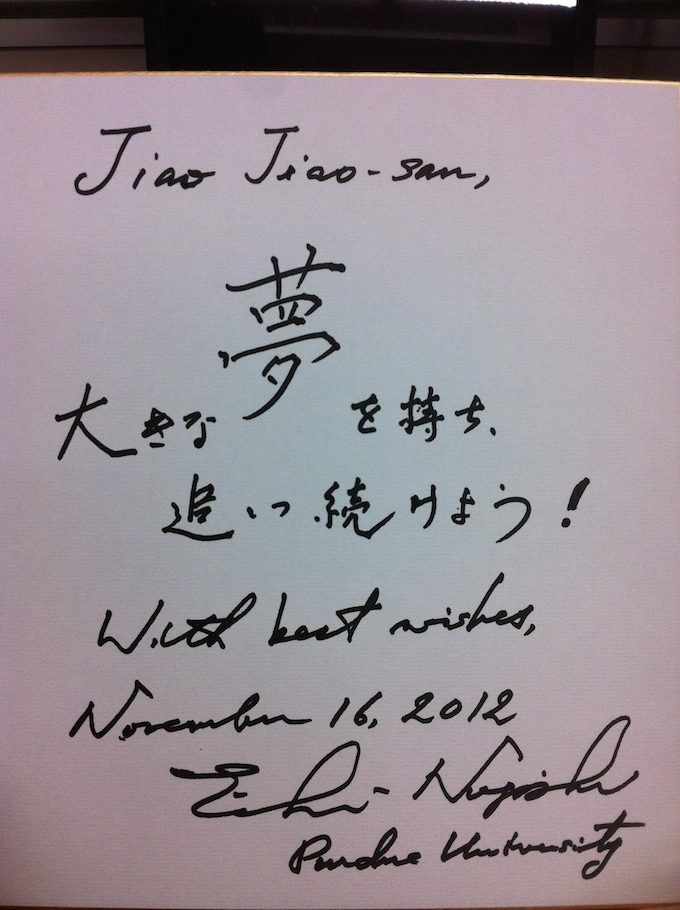 Jiao Jiao-san,
大きな夢を持ち、
追い続けよう!
With best wishes,
November 16, 2012
Ei-ichi Negishi
Purdue University